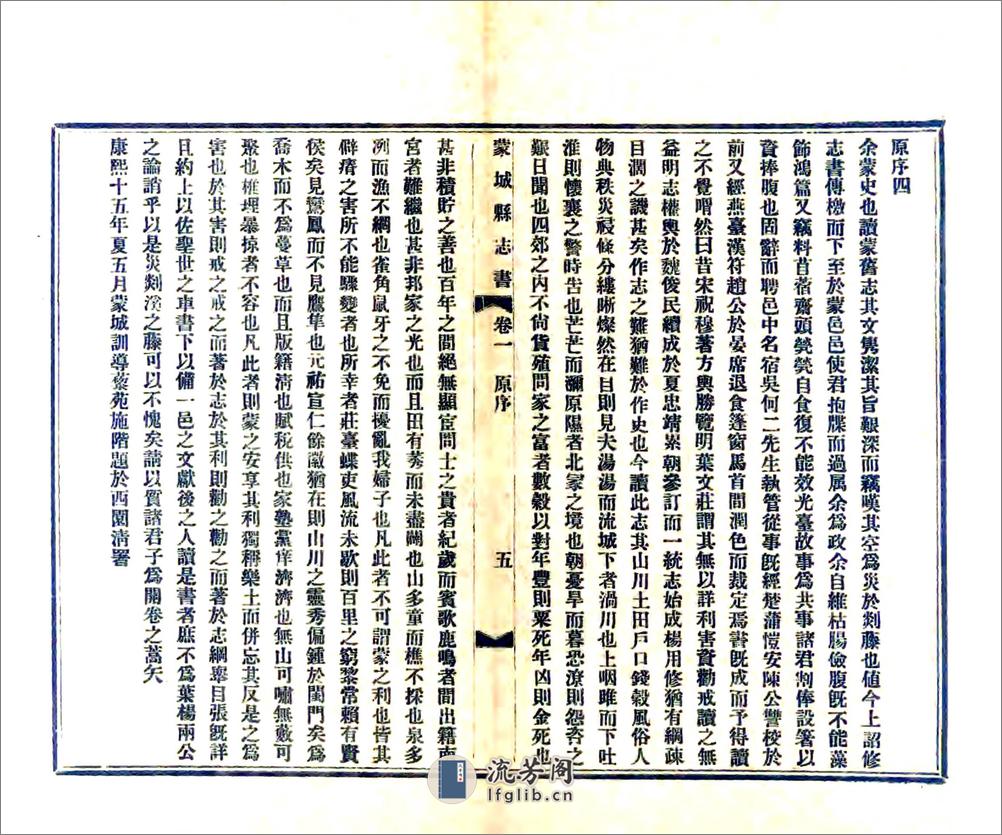 原序四
余蒙史也讀蒙舊志其文雋潔其旨艱深而竊嘆其空爲災於剡藤也値今上詔修
志書傳檄而下至於蒙邑邑使君抱牒而過属余爲政余自維枯腸儉腹既不能藻
飾鴻篇又竊料苜蓿齋頭煢煢自食復不能效光臺故事爲共事諸君割俸設箸以
資捧腹也固辭而聘邑中名宿吳何二先生執管從事既經楚蒲愷安陳公讐校於
前又經燕臺漢符趙公於晏席退食篷窗馬首間潤色而裁定焉書既成而予得讀
之不覺喟然曰昔宋祝穆著方輿勝覽明葉文莊謂其無以詳利害資勸戒讀之無
益明志權輿於魏俊民續成於夏忠靖累朝參訂而一統志始成楊用修猶有綱疎
目潤之譏甚矣作志之難猶難於作史也今讀此志其山川土田戶口錢穀風俗人
物典秩災祲條分縷晰燦然在目則見夫湯湯而流城下者渦川也上咽雎而下吐
淮則懷襄之警時吿也芒芒而瀰原隰者北冢之境也朝憂旱而暮恐潦則怨咨之
艱日聞也四郊之内不尙貨殖問家之富者數穀以對年豐則粟死年凶則金死也
蒙城縣志書 卷一 原序 五
甚非積貯之善也百年之間絕無顯宦問士之貴者紀歲而賓歌鹿鳴者間出籍南
宮者難繼也甚非邦家之光也而且田有莠而未盡闢也山多童而樵不採也泉多
冽而漁不網也雀角鼠牙之不免而擾亂我婦子也凡此者不可謂蒙之利也皆其
僻瘠之害所不能驟變者也所幸者莊臺蝶吏風流未歇則百里之窮黎常賴有賢
侯矣見鸞鳳而不見鷹隼也元祐宣仁餘徽猶在則山川之靈秀偏鍾於閨門矣爲
喬木而不爲蔓草也而且版籍淸也賦税供也家塾黨庠濟濟也無山可嘯無藪可
聚也椎理暴掠者不容也凡此者則蒙之安享其利獨稱樂土而併忘其反是之爲
害也於其害則戒之戒之而著於志於其利則勸之勸之而著於志綱舉目張既詳
且約上以佐聖世之車書下以備一邑之文獻後之人讀是書者庶不爲葉楊兩公
之論誚乎以是災剡溪之藤可以不愧矣請以質諸君子爲開卷之蒿矢
康熙十五年夏五月蒙城訓導藜苑施階題於西園淸署
流芳阁
lfglib.cn